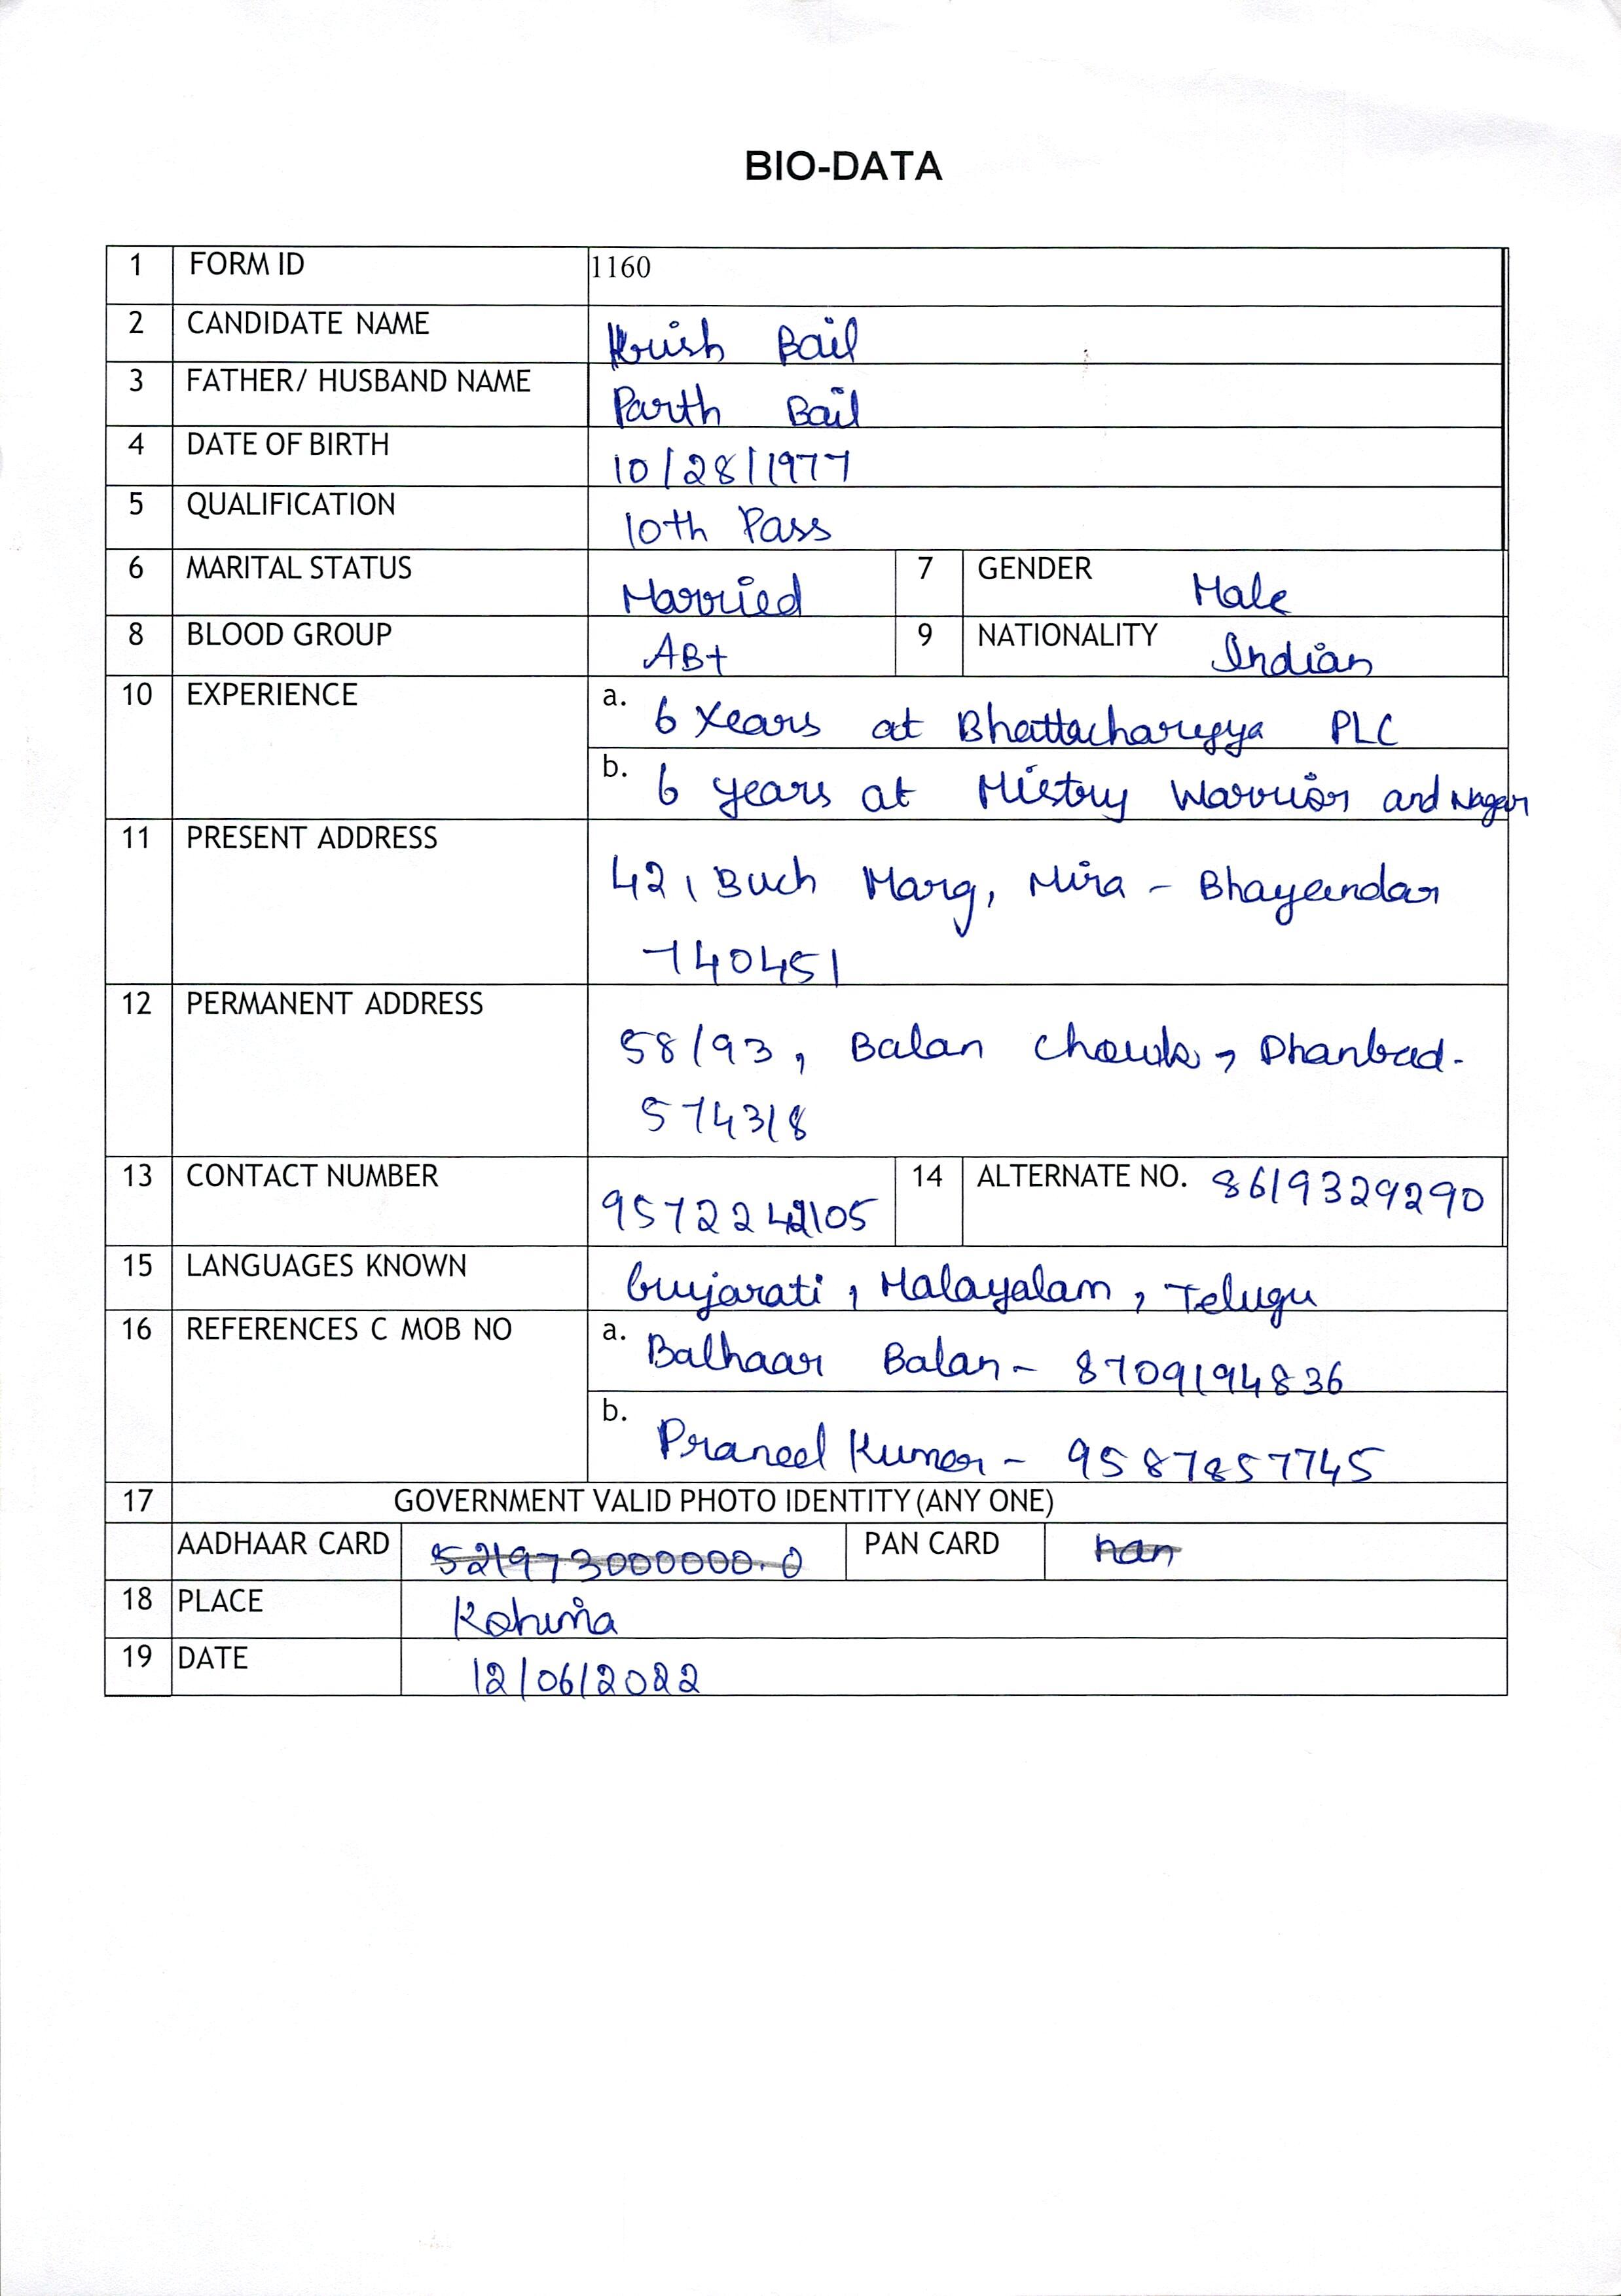 BIO-DATA
1 FORM ID 1160
2 CANDIDATE NAME Krish Bail
3 FATHER/ HUSBAND NAME Parth Bail
4 DATE OF BIRTH 10/28/1977
5 QUALIFICATION 10th Pass
6 MARITAL STATUS Married 7 GENDER Male
8 BLOOD GROUP AB+ 9 NATIONALITY Indian
10 EXPERIENCE a. 6 Years at Bhattacharyya PLC
b. 6 years at Mistry Warrior and Nagar
11 PRESENT ADDRESS 42, Buch Marg, Mira - Bhayandar
740451
12 PERMANENT ADDRESS 58/93, Balan Chowk, Dhanbad-
574318
13 CONTACT NUMBER 14 ALTERNATE NO. 8619329290
15 LANGUAGES KNOWN Gujarati, Malayalam, Telugu
16 REFERENCES C MOB NO a. Balhaar Balan - 8709194836
b. Praneel Kumar - 9587857745
17 GOVERNMENT VALID PHOTO IDENTITY (ANY ONE)
AADHAAR CARD 521973000000.0 PAN CARD nan
18 PLACE Kohima
19 DATE 12/06/2022